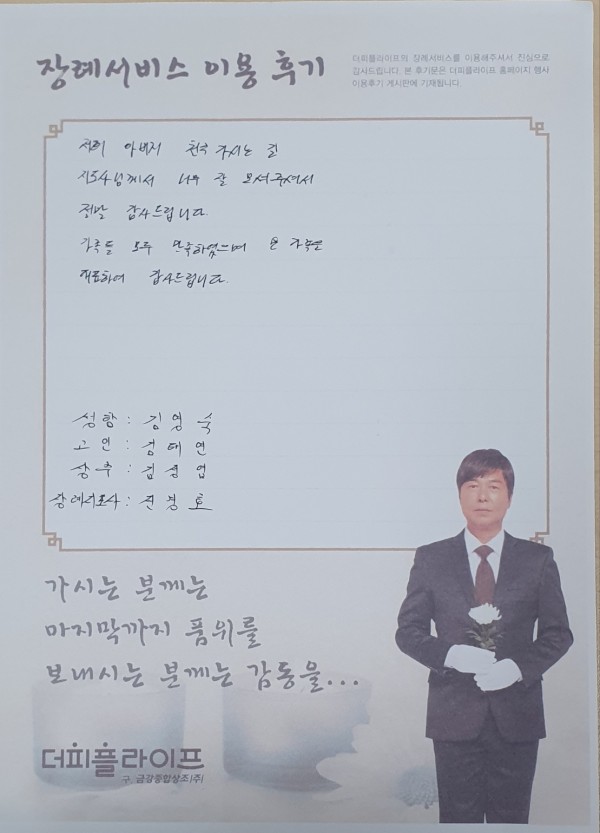 장례서비스 이용 후기
더피플라이프의 장례서비스를 이용해주셔서 진심으로
감사드립니다. 본 후기문은 더피플라이프 홈페이지 행사
이용후기 게시판에 기재됩니다.
저희 아버지 천국 가시는 길
지도사님께서 너무 잘 모셔주셔서
정말 감사드립니다.
가족들 모두 만족하였으며 온 가족을
대표하여 감사드립니다.
성함 : 김영숙
고인 : 김태연
상주 : 김
장례지도사 : 진경호
가시는 분께는
마지막까지 품위를
보내시는 분께는 감동을...
더피플라이프
구. 금강종합상조(주)